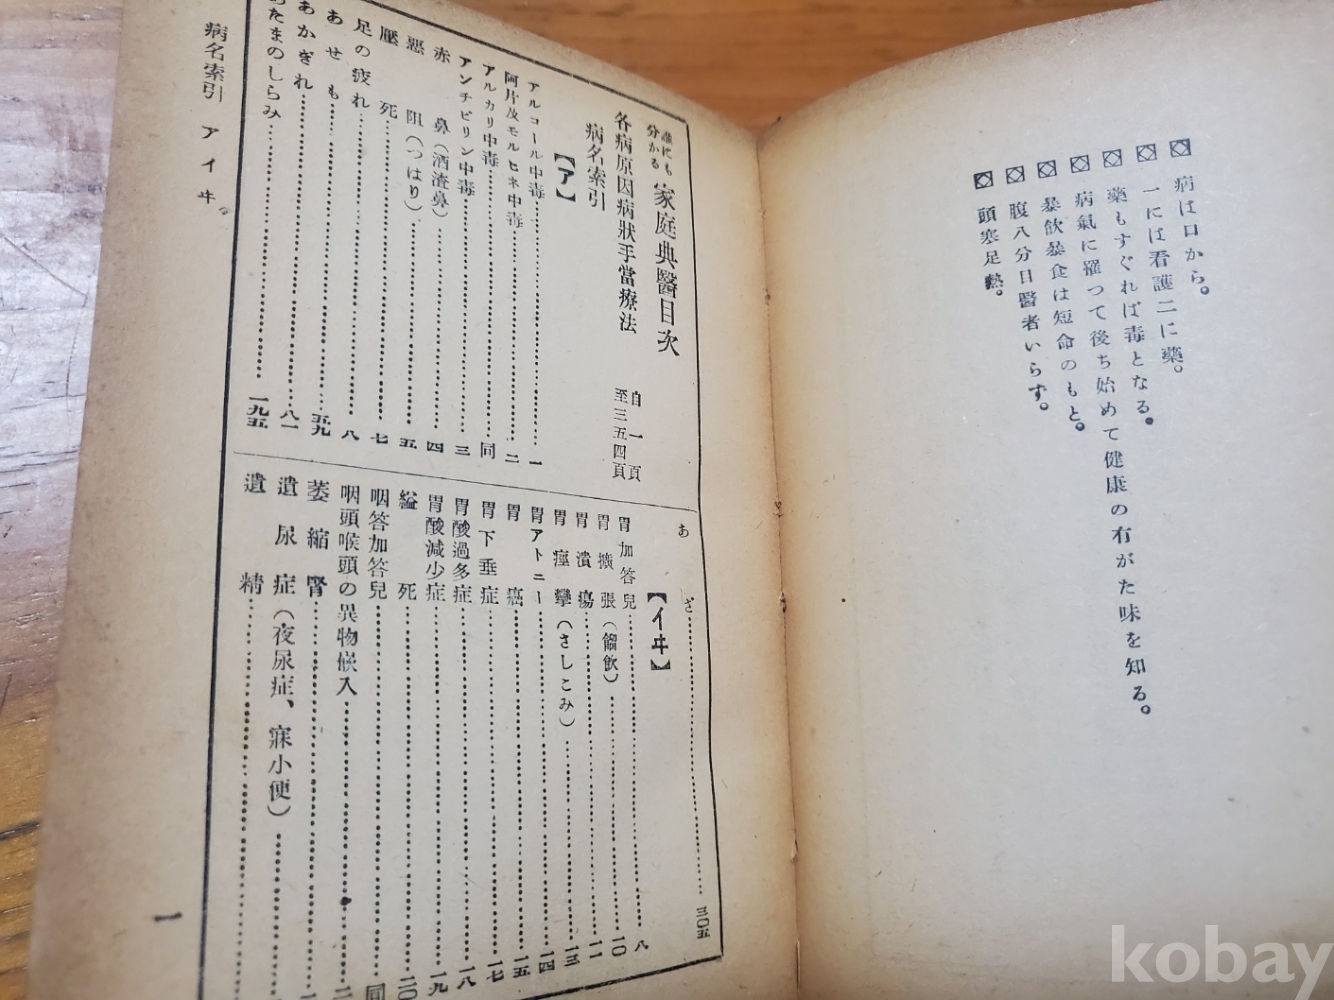 病は口から。
一には看護二に藥。
藥もすぐれば毒となる。
病氣に罹つて後ち始めて健康の有がた味を知る。
暴飮暴食は短命のもと。
腹八分目醫者いらず。
頭寒足熱。
誰にも分かる 家庭典醫目次
各病原因病狀手當療法 自一頁 至三五四頁
病名索引
【ア】
アルコール中毒 一
阿片及モルヒネ中毒 二
アルカリ中毒 同
アンチピリン中毒 三
赤鼻(酒渣鼻) 四
惡阻(つはり) 五
壓死 七
足の疲れ 八
あせも 五九
あかぎれ 八一
あたまのしらみ 一九五
あざ 三〇五
【イヰ】
胃加答兒 八
胃擴張(餾飮) 一〇
胃潰瘍 一一
胃痙攣(さしこみ) 一三
胃アトニー 一四
胃癌 一五
胃下垂症 一七
胃酸過多症 一八
胃酸減少症 一九
縊死 二〇
咽答加答兒 同
咽頭喉頭の異物嵌入
萎縮腎
遺尿症(夜尿症、寐小便)
遺精
病名索引 アイヰ
一
kobay